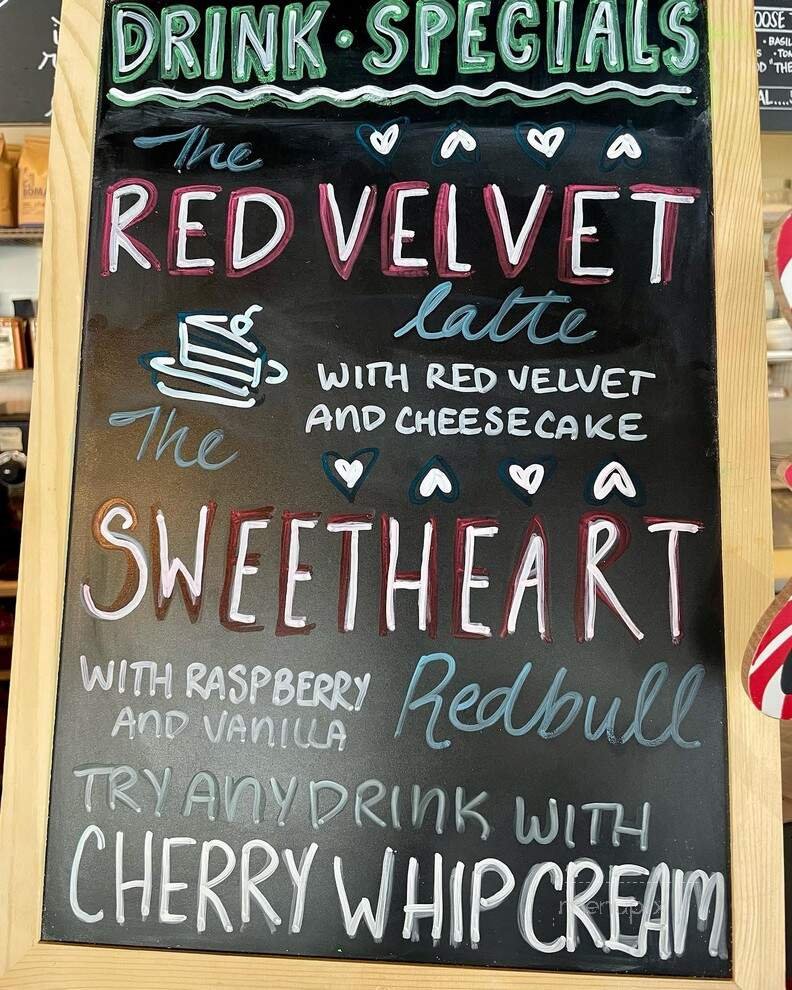 DRINK · SPECIALS
The
RED VELVET
latte
WITH RED VELVET
AND CHEESECAKE
The
SWEETHEART
WITH RASPBERRY
AND VANILLA
Redbull
TRY ANY DRINK WITH
CHERRY WHIP CREAM